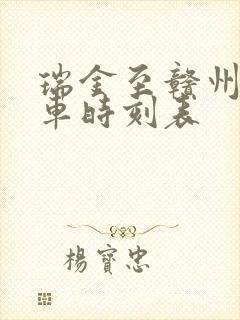 瑞金至赣州
車時刻表
楊寶忠